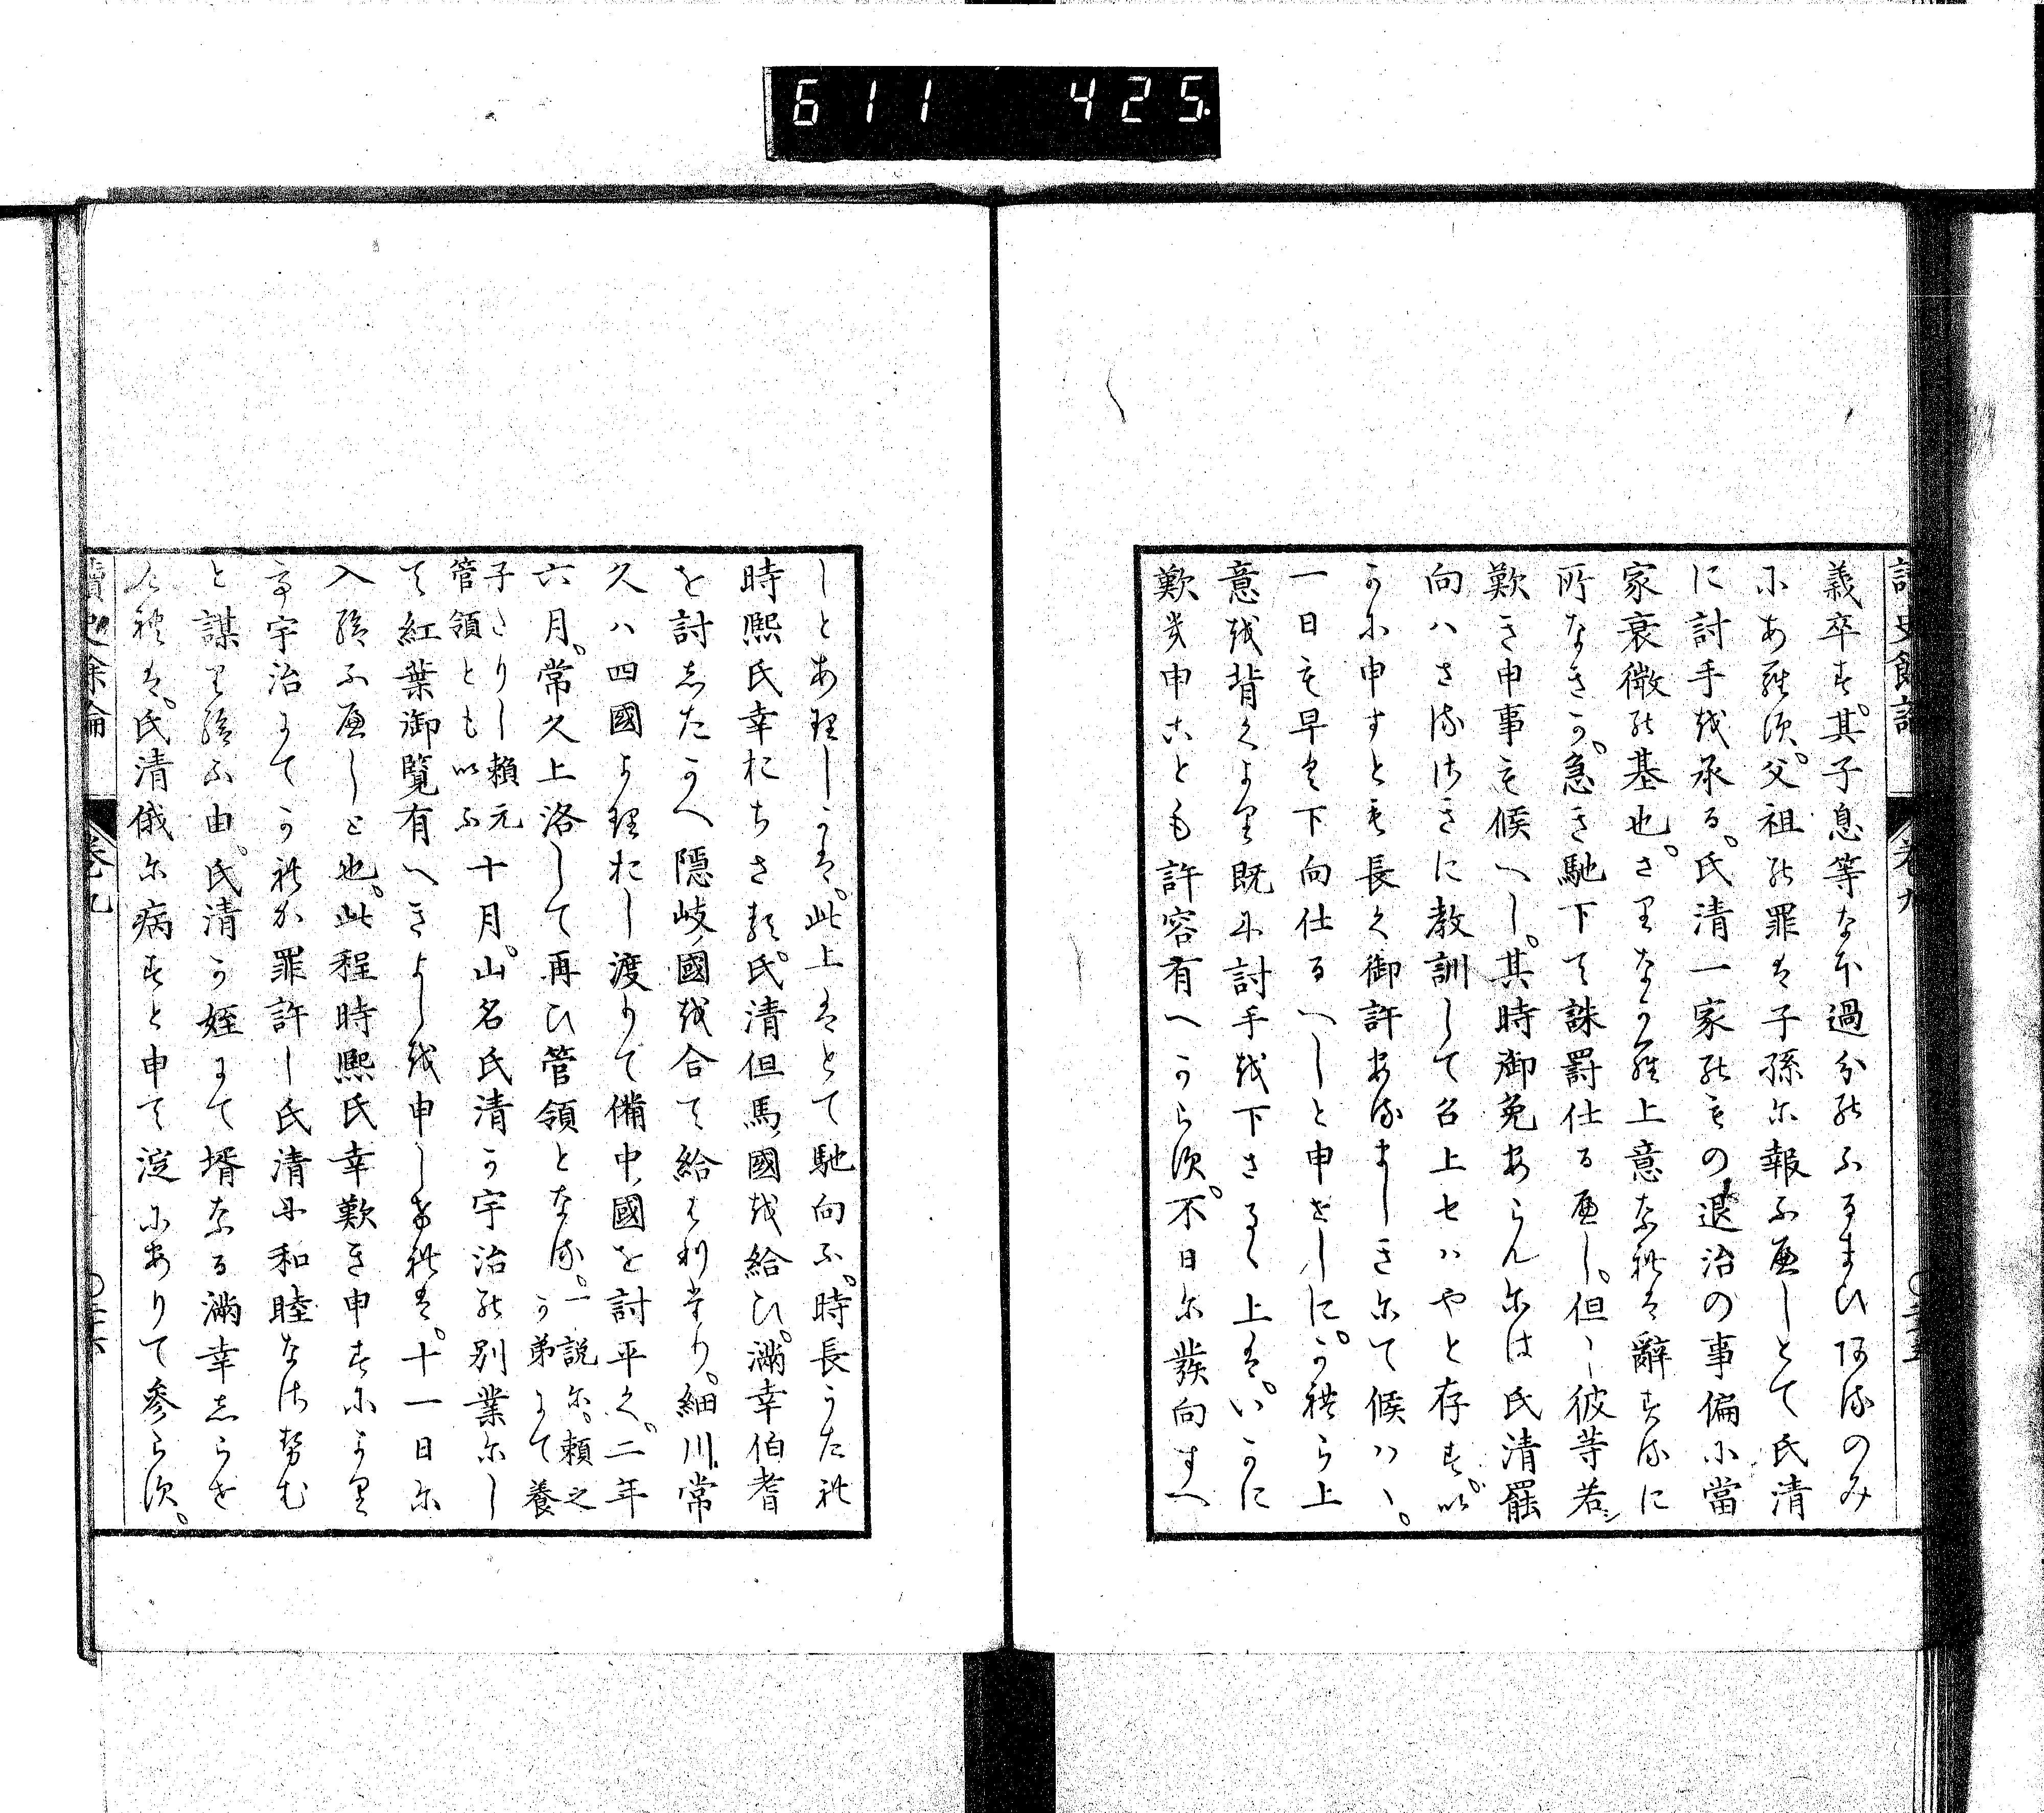 611 425.
讀史餘論 卷九 〇二十五
義卒す。其子息等なほ過分のふるまひ阿るのみ
にあらす。父祖の罪は子孫に報ふへしとて氏清
に討手を承る。氏清一家のもの退治の事偏に當
家衰微の基也。さりなから上意なれは辭するに
所なきか。急き馳下て誅罰仕るへし。但し彼等若シ
歎き申事も候へし。其時御免あらんには氏清罷
向ハさるさきに教訓して召上セハやと存す。以
かに申すとも長く御許あるましきにて候ハヽ。
一日も早く下向仕るへしと申せしに。かれら上
意を背くより既に討手を下さるゝ上は。いかに
歎き申ことも許容有へからす。不日に發向すへ
しとありしかは。此上はとて馳向ふ。時長うたれ
時熙氏幸おちさる。氏清但馬ノ國を給ひ。滿幸伯耆
を討したかへ隱岐ノ國を合て給はりけり。細川ノ常
久ハ四國よりおし渡りて備中ノ國を討平く。二年
六月。常久上洛して再ひ管領となる。一説に。頼之か弟にて養
子さりし頼元管領とも以ふ十月。山名氏清か宇治の別業にし
て紅葉御覽有へきよしを申しけれは。十一日に
入給ふへしと也。此程時熙氏幸歎き申すにより
て宇治にてかれか罪許し氏清に和睦なさしむ
と謀り給ふ由。氏清か姪にて壻なる滿幸しらせ
されは。氏清俄に病すと申て淀にありて參らす。
讀史餘論 卷九 〇二十六